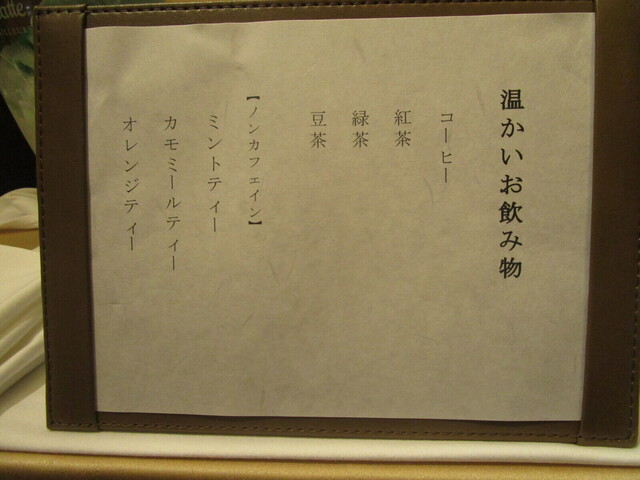 温かいお飲み物
コーヒー
紅茶
緑茶
豆茶
【ノンカフェイン】
ミントティー
カモミールティー
オレンジティー